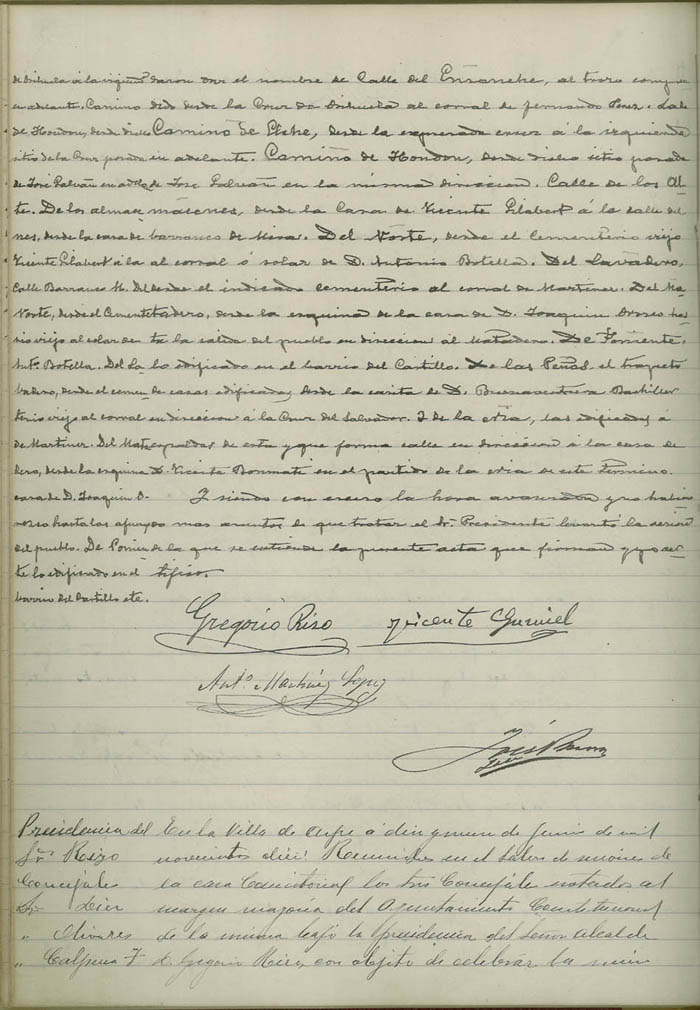 de Orihuela á la izquierda daron dar el nombre de Calle del Ensanche, al trozo compren
en adelante. Camino dido desde la Cruz de Orihuela al corral de Fernando Perez. Calle
de Hondon, desde dicho Camino de Elche, desde la expresada cruz á la izquierda
sitio de la Cruz posada en adelante. Camino de Hondon, desde dicho sitio posada
de José Galván en adelante de José Galván en la misma direccion. Calle de los Al
te. De los almace macenes, desde la Casa de Vicente Gilabert á la calle del
nes, desde la casa de barranco de Mira. Del Norte, desde el Cementerio viejo
Vicente Gilabert á la al corral ó solar de D. Antonio Botella. Del Lavadero,
Calle Barranco M. Del desde el indicado cementerio al corral de Martinez. Del Ma
Norte, desde el Cemente tadero, desde la esquina de la casa de D. Joaquin Orozco has
rio viejo al solar de ta la salida del pueblo en direccion al Matadero. De Poniente,
Antº Botella. Del La lo edificado en el barrio del Castillo. De las Peñas el trayecto
vadero, desde el cemen de casas edificadas desde la casita de D. Buenaventura Botella
terio viejo al corral en direccion á la Cruz del Salvador. Y de la via, las edificadas á
de Martinez. Del Mata espaldas de esta y que forma calle en direccion á la casa de
dero, desde la esquina D. Vicente Bonmatí en el partido de la via de este término.
casa de D. Joaquin O- Y siendo con exceso la hora avanzada y no habien
rozco hasta las afueras mas asuntos de que tratar el Sr. Presidente levantó la sesion
del pueblo. De Ponien de la que se extiende la presente acta que firman y yo cer
te lo edificado en el tifico.
barrio del Castillo etc.
Gregorio Rizo Vicente
Antº Martinez Lopez
José
Presidencia del En la Villa de Aspe á diez y nueve de Junio de mil
Sr. Rizo novecientos diez: Reunidos en el Salon de sesiones de
Concejales la casa Consistorial los tres Concejales notados al
Sr. Díez margen mayoria del Ayuntamiento Constitucional
" Olivares de la misma bajo la Presidencia del Señor Alcalde
" Calpena F. D. Gregorio Rizo, con objeto de celebrar la